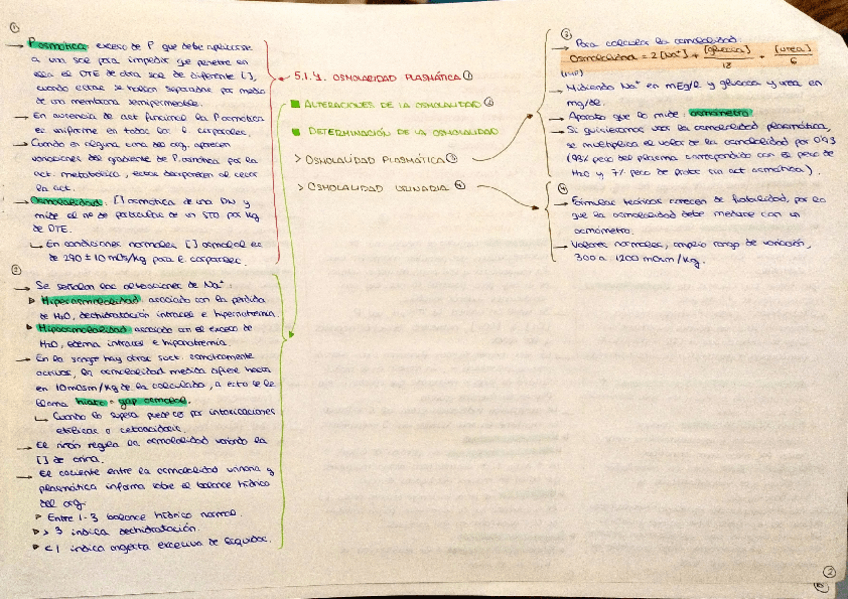 ①
→ P osmótica: exceso de P que debe aplicarse
a una sol para impedir que penetre en
ella el DTE de otra sol de diferente [ ],
cuando estas se hallan separadas por medio
de una membrana semipermeable.
→ En ausencia de act funcional la P osmótica
es uniforme en todos los l corporales.
→ Cuando en alguna zona del org. aparecen
variaciones del gradiente de P. osmótica por la
act. metabólica, estas desaparecen al cesar
la act.
→ Osmolalidad: [ ] osmótica de una Dis y
mide el nº de partículas de un STO por Kg
de DTE.
↳ En condiciones normales [ ] osmolal es
de 290 ± 10 mOs/kg para l. corporales.
②
→ Se señalan las alteraciones de Na⁺:
▸ Hiperosmolalidad asociado con la pérdida
de H₂O, deshidratación intracel e hipernatremia.
▸ Hipoosmolalidad asociado con el exceso de
H₂O, edema intracel e hiponatremia.
→ En la sangre hay otras sust. osmóticamente
activas, la osmolalidad medida difiere hasta
en 10 mOsm/Kg de la calculada, a esto se le
llama hiato o gap osmolal.
↳ Cuando lo supera puede ser por intoxicaciones
etílicas o cetoacidosis.
→ El riñón regula la osmolalidad variando la
[ ] de orina.
→ El cociente entre la osmolalidad urinaria y
plasmática informa sobre el balance hídrico
del org.
▸ Entre 1-3 balance hídrico normal.
▸ > 3 indica deshidratación.
▸ < 1 indica ingesta excesiva de líquidos.
5.1.4. OSMOLALIDAD PLASMÁTICA ①
■ ALTERACIONES DE LA OSMOLALIDAD ②
■ DETERMINACIÓN DE LA OSMOLALIDAD
> OSMOLALIDAD PLASMÁTICA ③
> OSMOLALIDAD URINARIA ④
③
→ Para calcular la osmolalidad:
Osmolalidad = 2 [Na⁺] + [glucosa]/18 + [urea]/6
(IMP)
→ Midiendo Na⁺ en mEq/l y glucosa y urea en
mg/dl.
→ Aparato que lo mide: osmómetro
→ Si quisiéramos usar la osmolaridad plasmática,
se multiplica el valor de la osmolalidad por 0'93
(93% peso del plasma corresponde con el peso de
H₂O y 7% peso de protes sin act osmótica).
④
→ Fórmulas teóricas carecen de fiabilidad, por lo
que la osmolalidad debe medirse con un
osmómetro.
→ Valores normales, amplio rango de variación,
300 a 1200 mOsm/Kg.
②